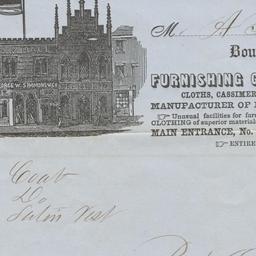 M. A
Bou
GEORGE W. SIMMONS & CO
FURNISHING G
CLOTHS, CASSIMER
MANUFACTURER OF
☞ Unusual facilities for fur
CLOTHING of superior material
MAIN ENTRANCE, No.
☞ ENTIRE
Coat
Do
Satin Vest